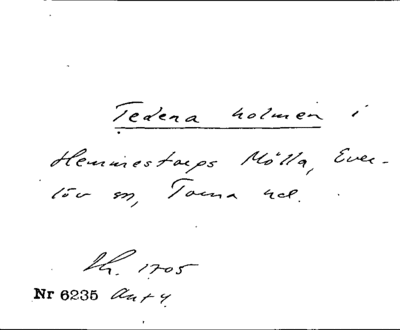 Tedena holmen i
Hemmestorps Mölla, Ever-
löv sn, Torna hd.
Lh. 1705
Nr 6235 Ant 4